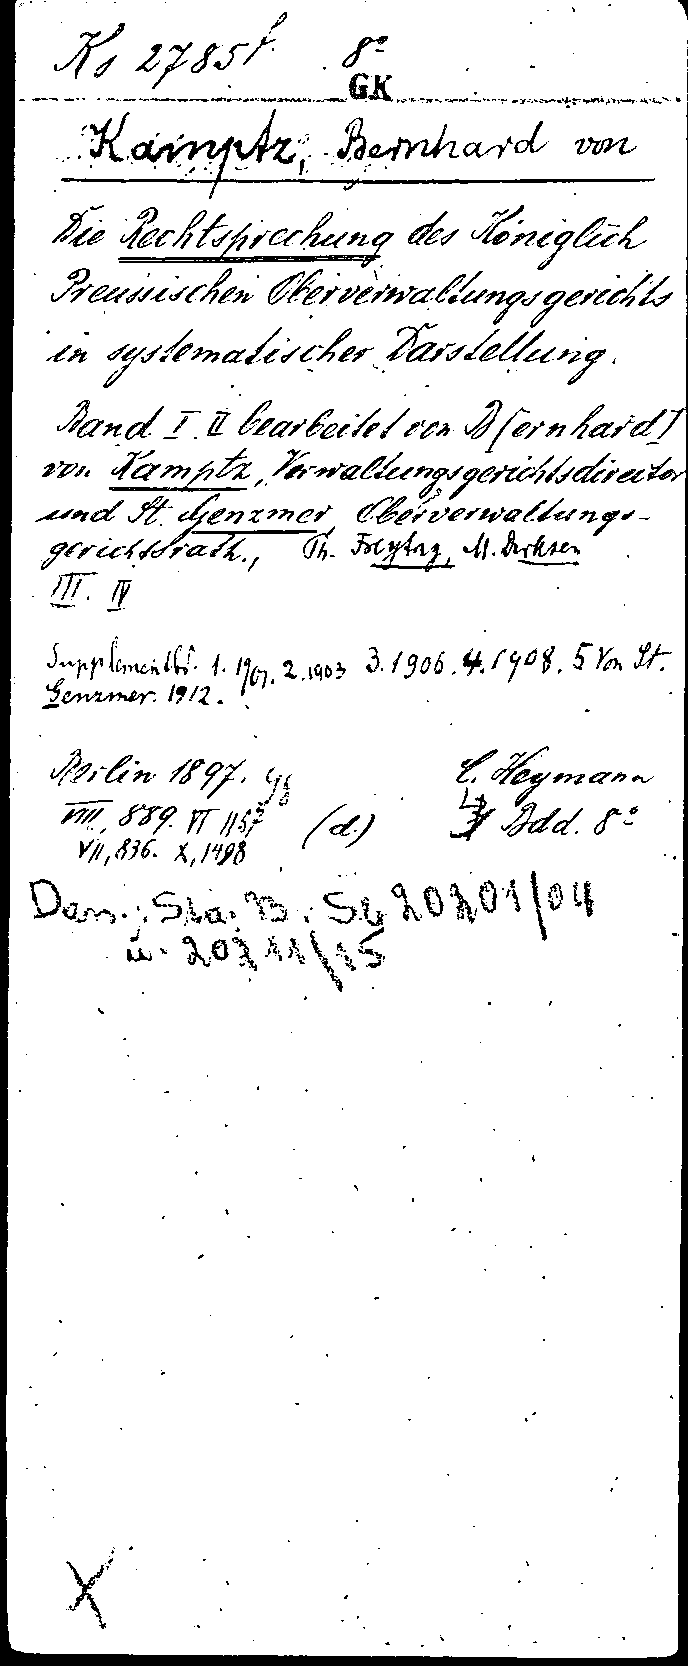 Ks 2785f. 8°
GK
Kamptz, Bernhard von
Die Rechtsprechung des Königlich
Preussischen Oberverwaltungsgerichts
in systematischer Darstellung.
Band I. II bearbeitet von B[ernhard]
von Kamptz, Verwaltungsgerichtsdirector
und St. Genzmer, Oberverwaltungs-
gerichtsrath., Th. Freytag, M. Dirksen
III. IV
Supplementbd. 1. 1901. 2. 1903 3. 1906. 4. 1908. 5 Von St.
Genzmer. 1912.
Berlin 1897. 98 C. Heymann
VIII, 889. VI 1157 (d.) 4 Bdd. 8°
VII, 836. X, 1498
Dan.; Sta. B. Sb 20201/04
u. 20211/15
X